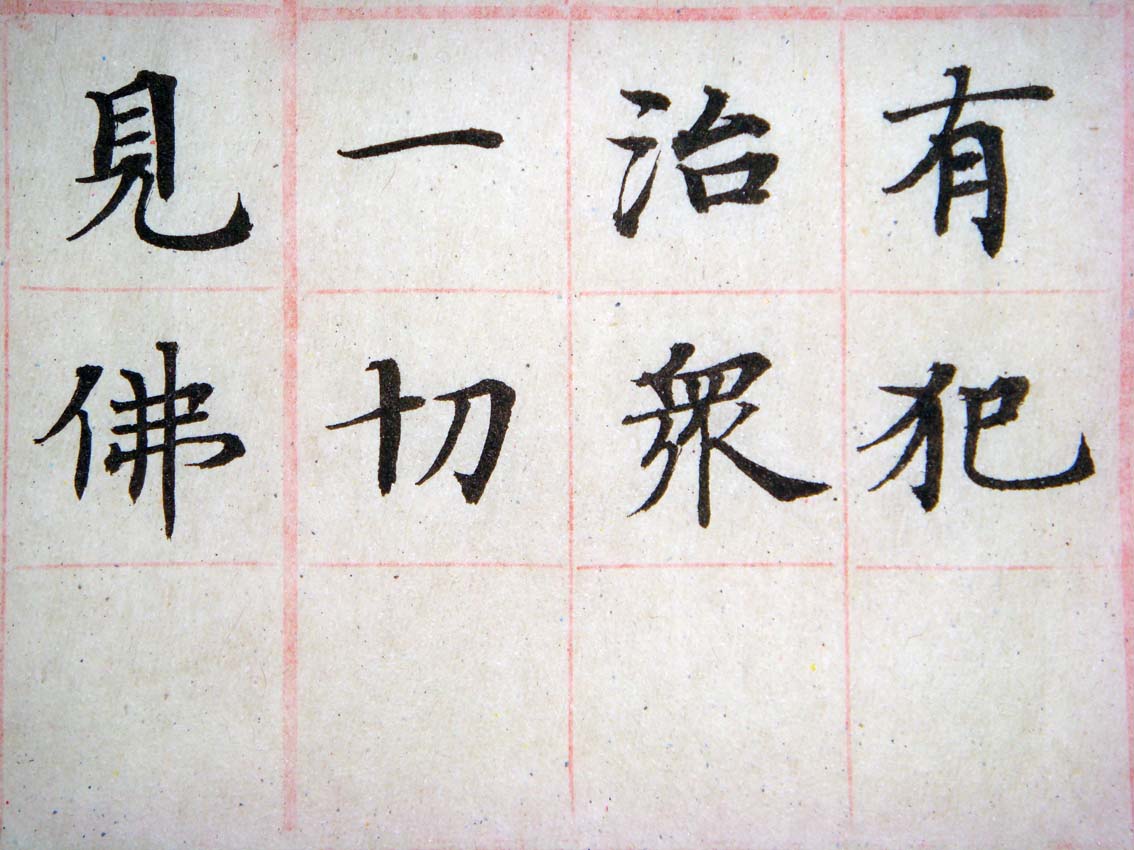 有犯
治眾
一切
見佛